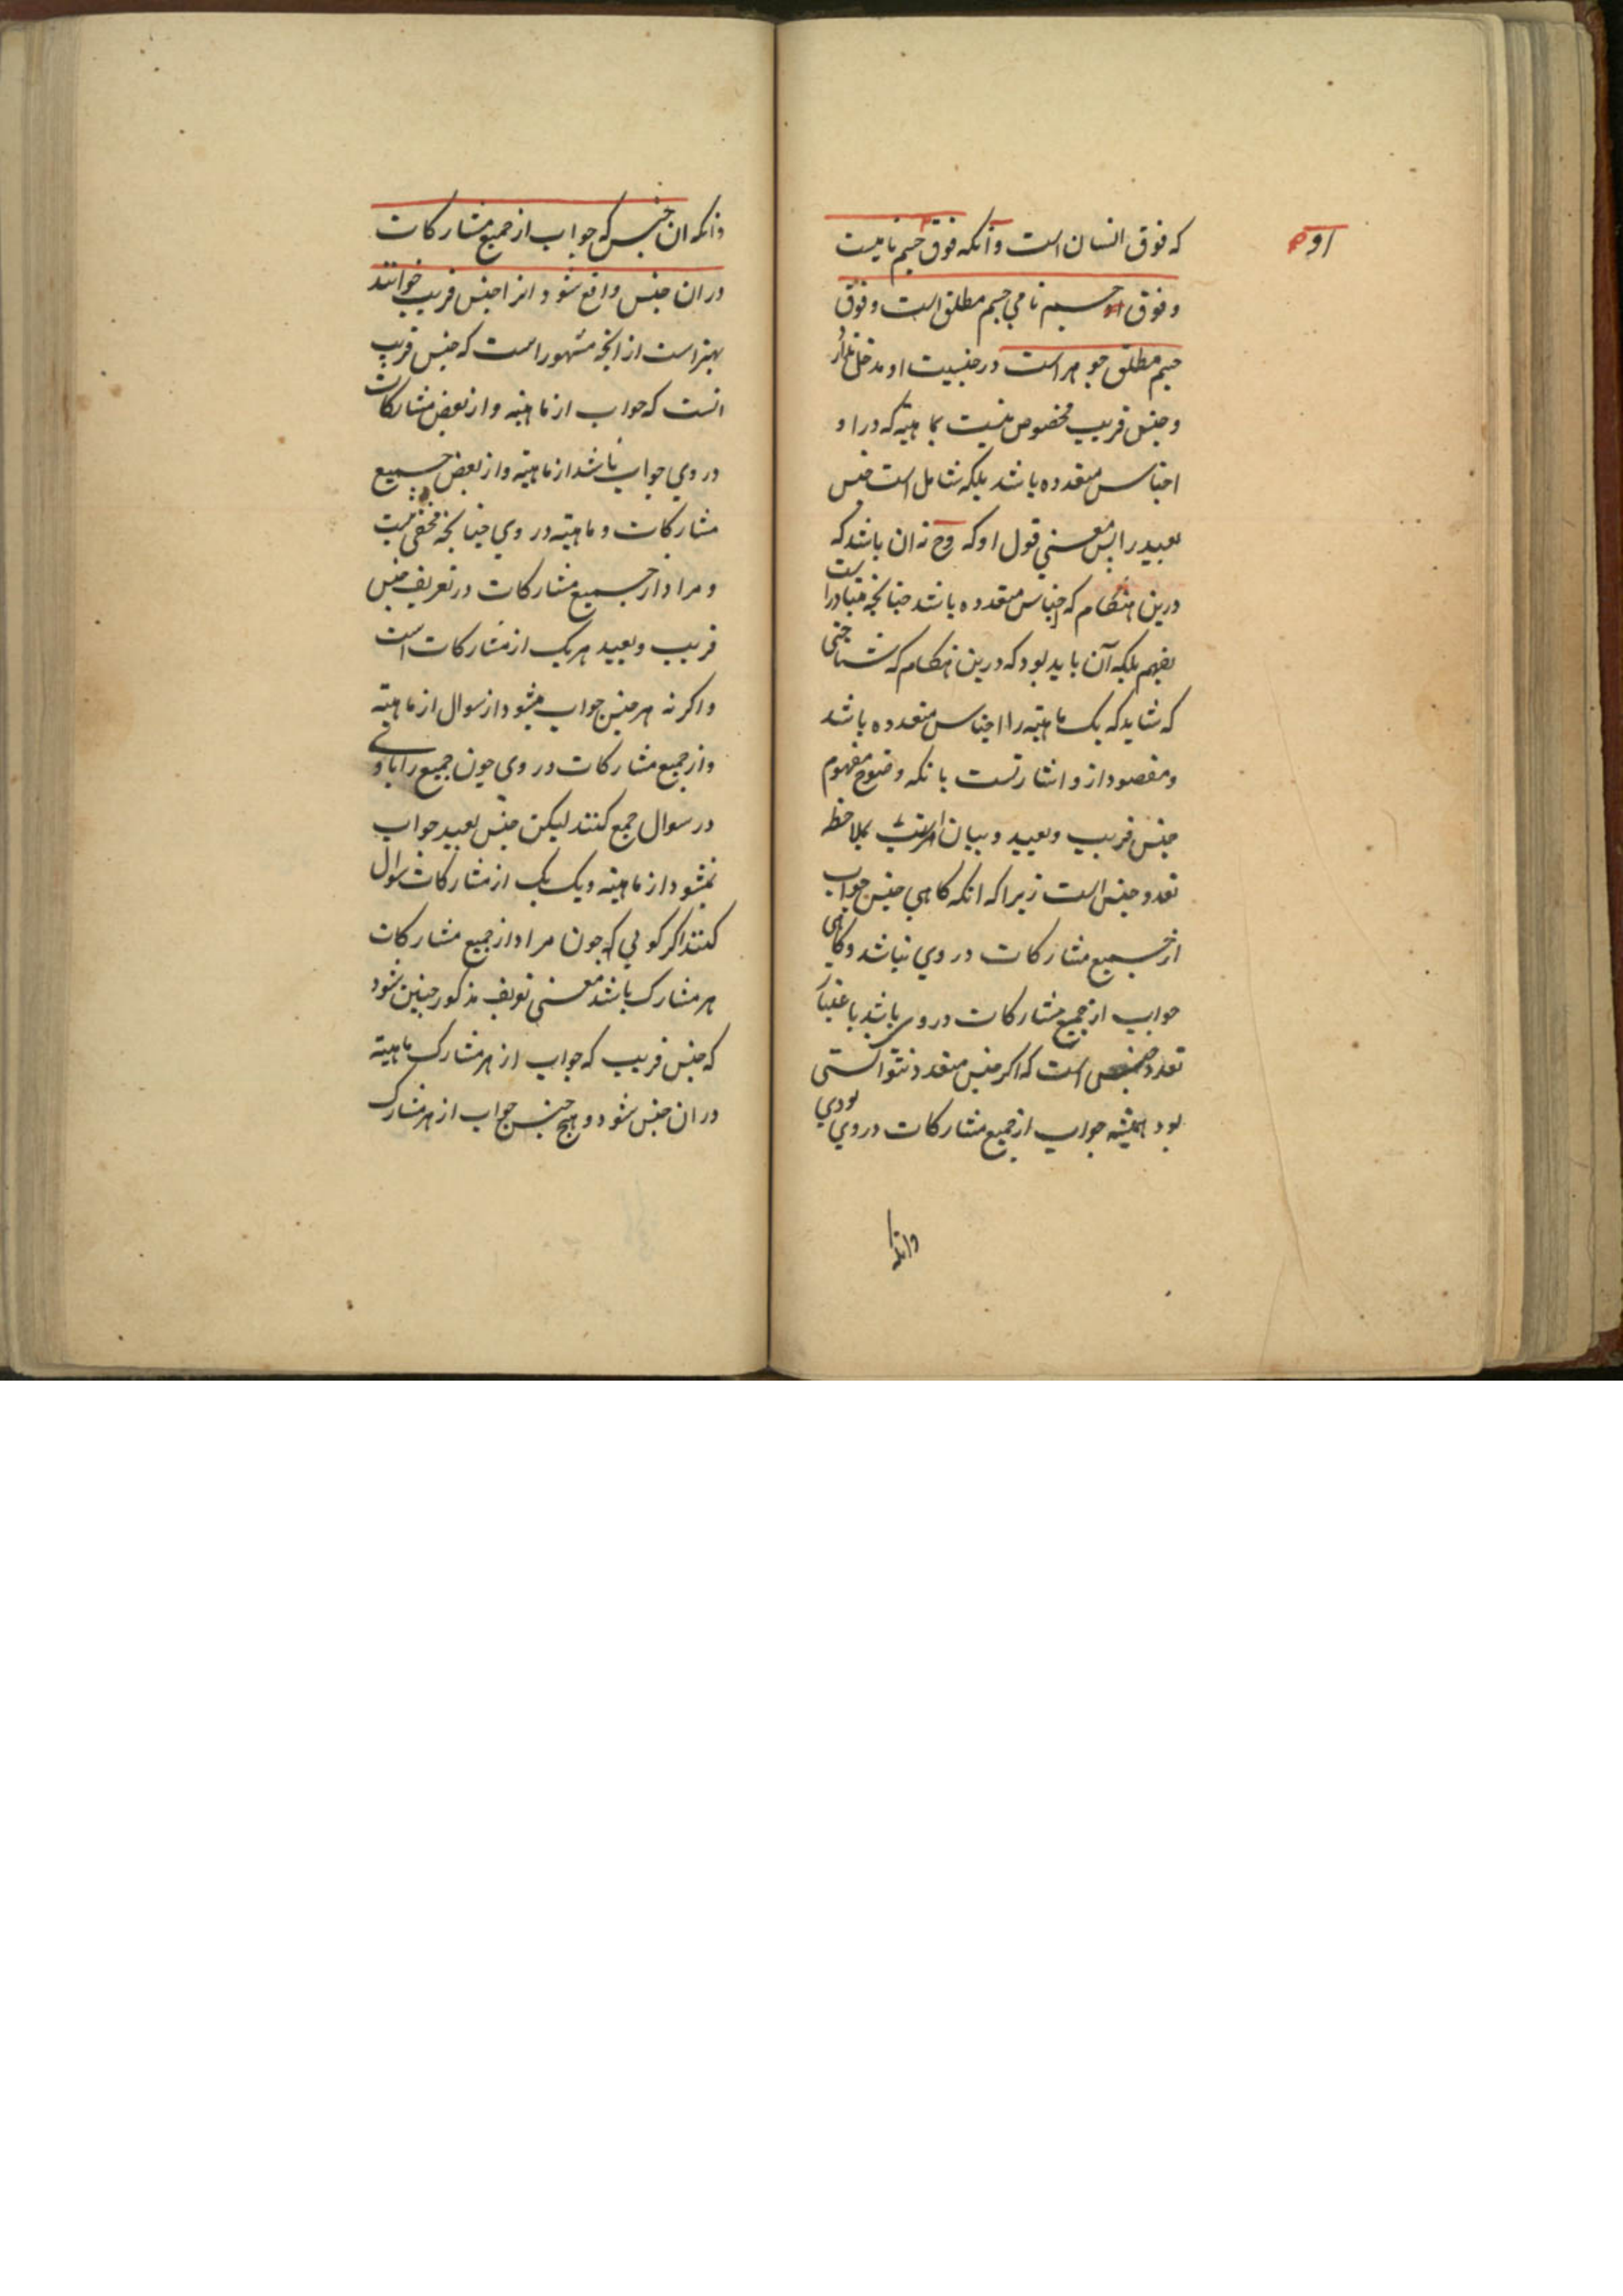 که فوق انسان است و آنکه فوق جسم نامیست
او
و فوق جسم نامی جسم مطلق است و فوق
جسم مطلق جوهر است در جنسیت او مدخلی ندارد
و جنس قریب مخصوص نیست بماهیته که در او
اجناس متعدده باشد بلکه شامل است جنس
بعید را پس معنی قول او که وح نه ان باشد که
درین هنگام که اجناس متعدده باشد چنانچه متبادر است
بفهم بلکه آن باید بود که درین هنگام که شناختی
که شاید که یک ماهیته را اجناس متعدده باشد
و مقصود ازو اشارتست بانکه وضوح مفهوم
جنس قریب و بعید و بیان بملاحظه
تعدد جنس است زیرا که انکه کاهی جنس جواب
از جمیع مشارکات در وی نباشد و کاهی
جواب از جمیع مشارکات در وی باشد باعتبار
تعدد جنس است که اکر جنس متعدد نتوانستی
بود همیشه جواب از جمیع مشارکات در وی بودی
وانکه
وانکه ان جنس که جواب از جمیع مشارکات
در ان جنس واقع شود انرا جنس قریب خوانند
بهتر است از انچه مشهور است که جنس قریب
انست که جواب از ماهیته و از بعض مشارکات
در وی جواب باشد از ماهیته و از بعض جمیع
مشارکات و ماهیته در وی چنانچه مخفی نیست
و مراد از جمیع مشارکات در تعریف جنس
قریب و بعید هر یک از مشارکات است
و اکر نه هر جنس جواب میشود از سوال از ماهیته
و از جمیع مشارکات در وی چون جمیع را باوی
در سوال جمع کنند لیکن جنس بعید جواب
نمیشود از ماهیته و یک یک از مشارکات سوال
کنند اکر کویی که چون مراد از جمیع مشارکات
هر مشارک باشد معنی تعریف مذکور چنین شود
که جنس قریب که جواب از هر مشارک ماهیته
در ان جنس شود و هیچ جنس جواب از هر مشارک